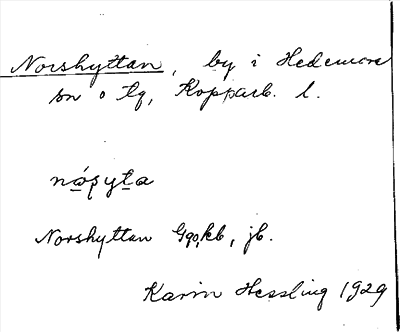 Norshyttan, by i Hedemora
sn o tg, Kopparb. l.
Norshyttan Gqo, kb, jb.
Karin Hessling 1929